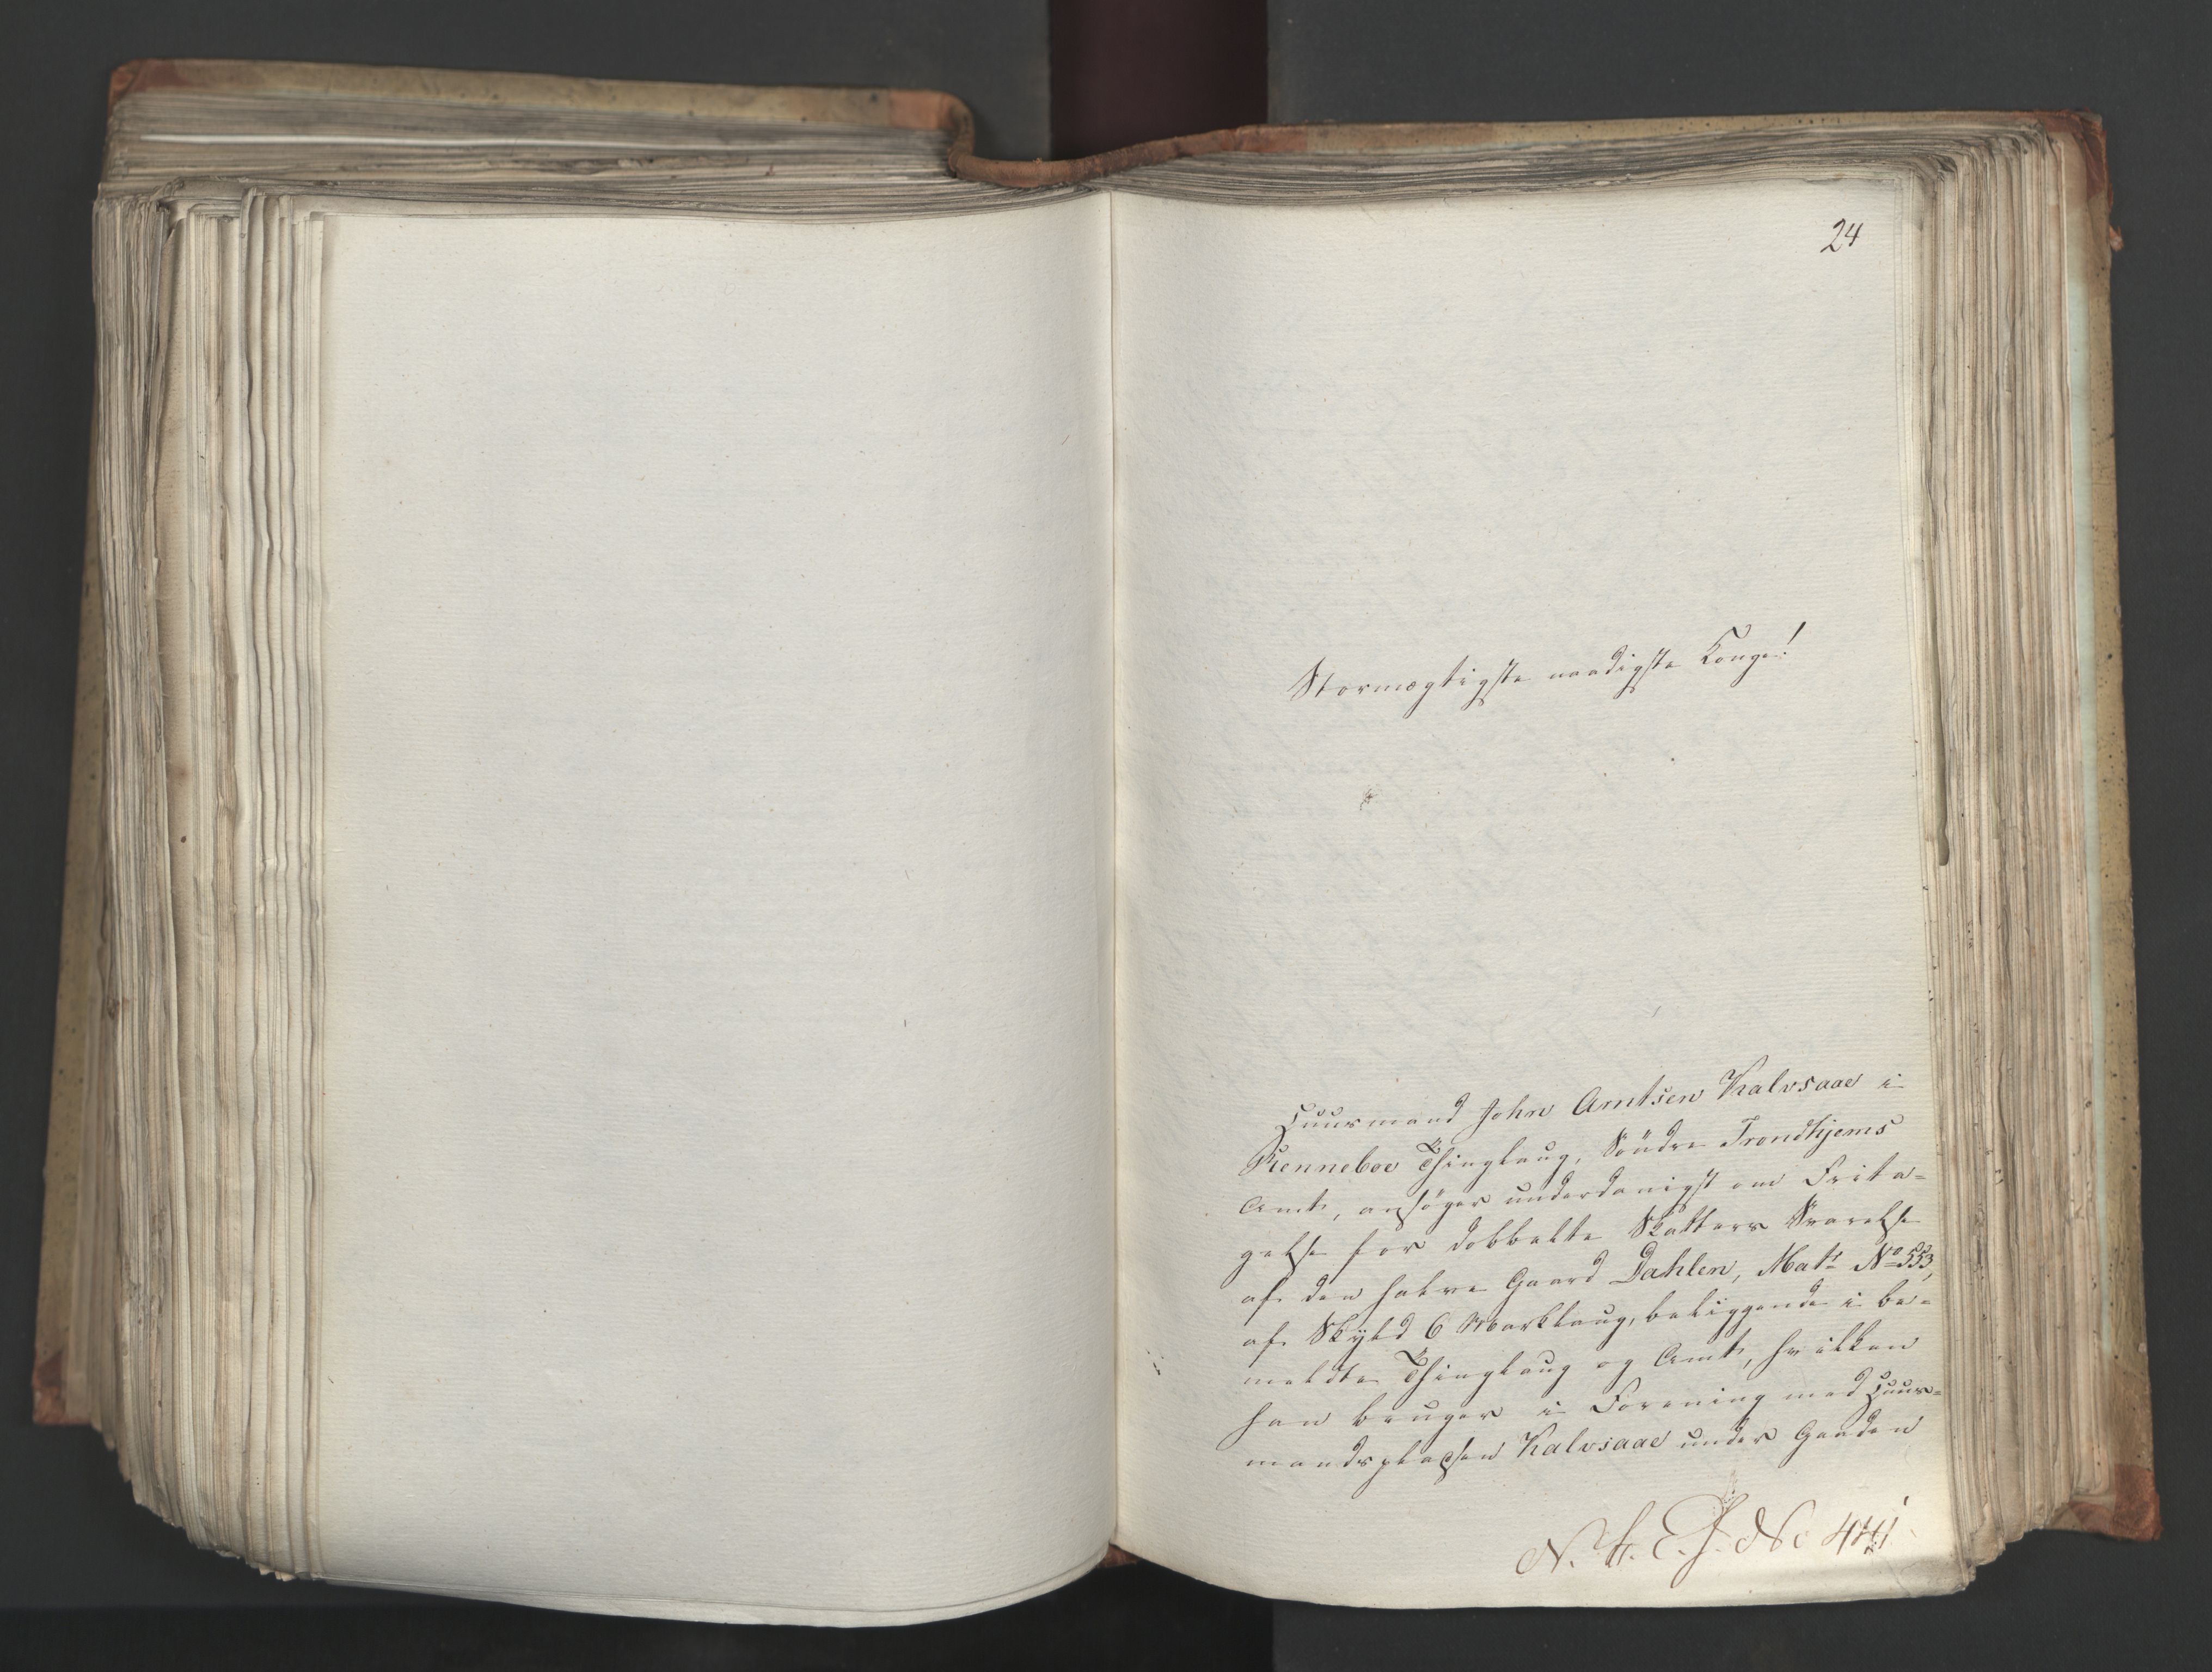 24
Stormægtigste naadigste Konge!
Huusmand John Arntsen Kalvsaae i
Renneboe Thinglaug, Söndre Trondhjems
Amt, ansöger underdanigst om Frita-
gelse for dobbelte Skatters Svarelse
af den halve Gaard Dahlen, Matr No 553,
af Skyld 6 Marklaug, beliggende i be-
meldte Thinglaug og Amt, hvilken
han bruger i Forening med Huus-
mandspladsen Kalvsaae under Gaarden
N. A. E. J. No 441